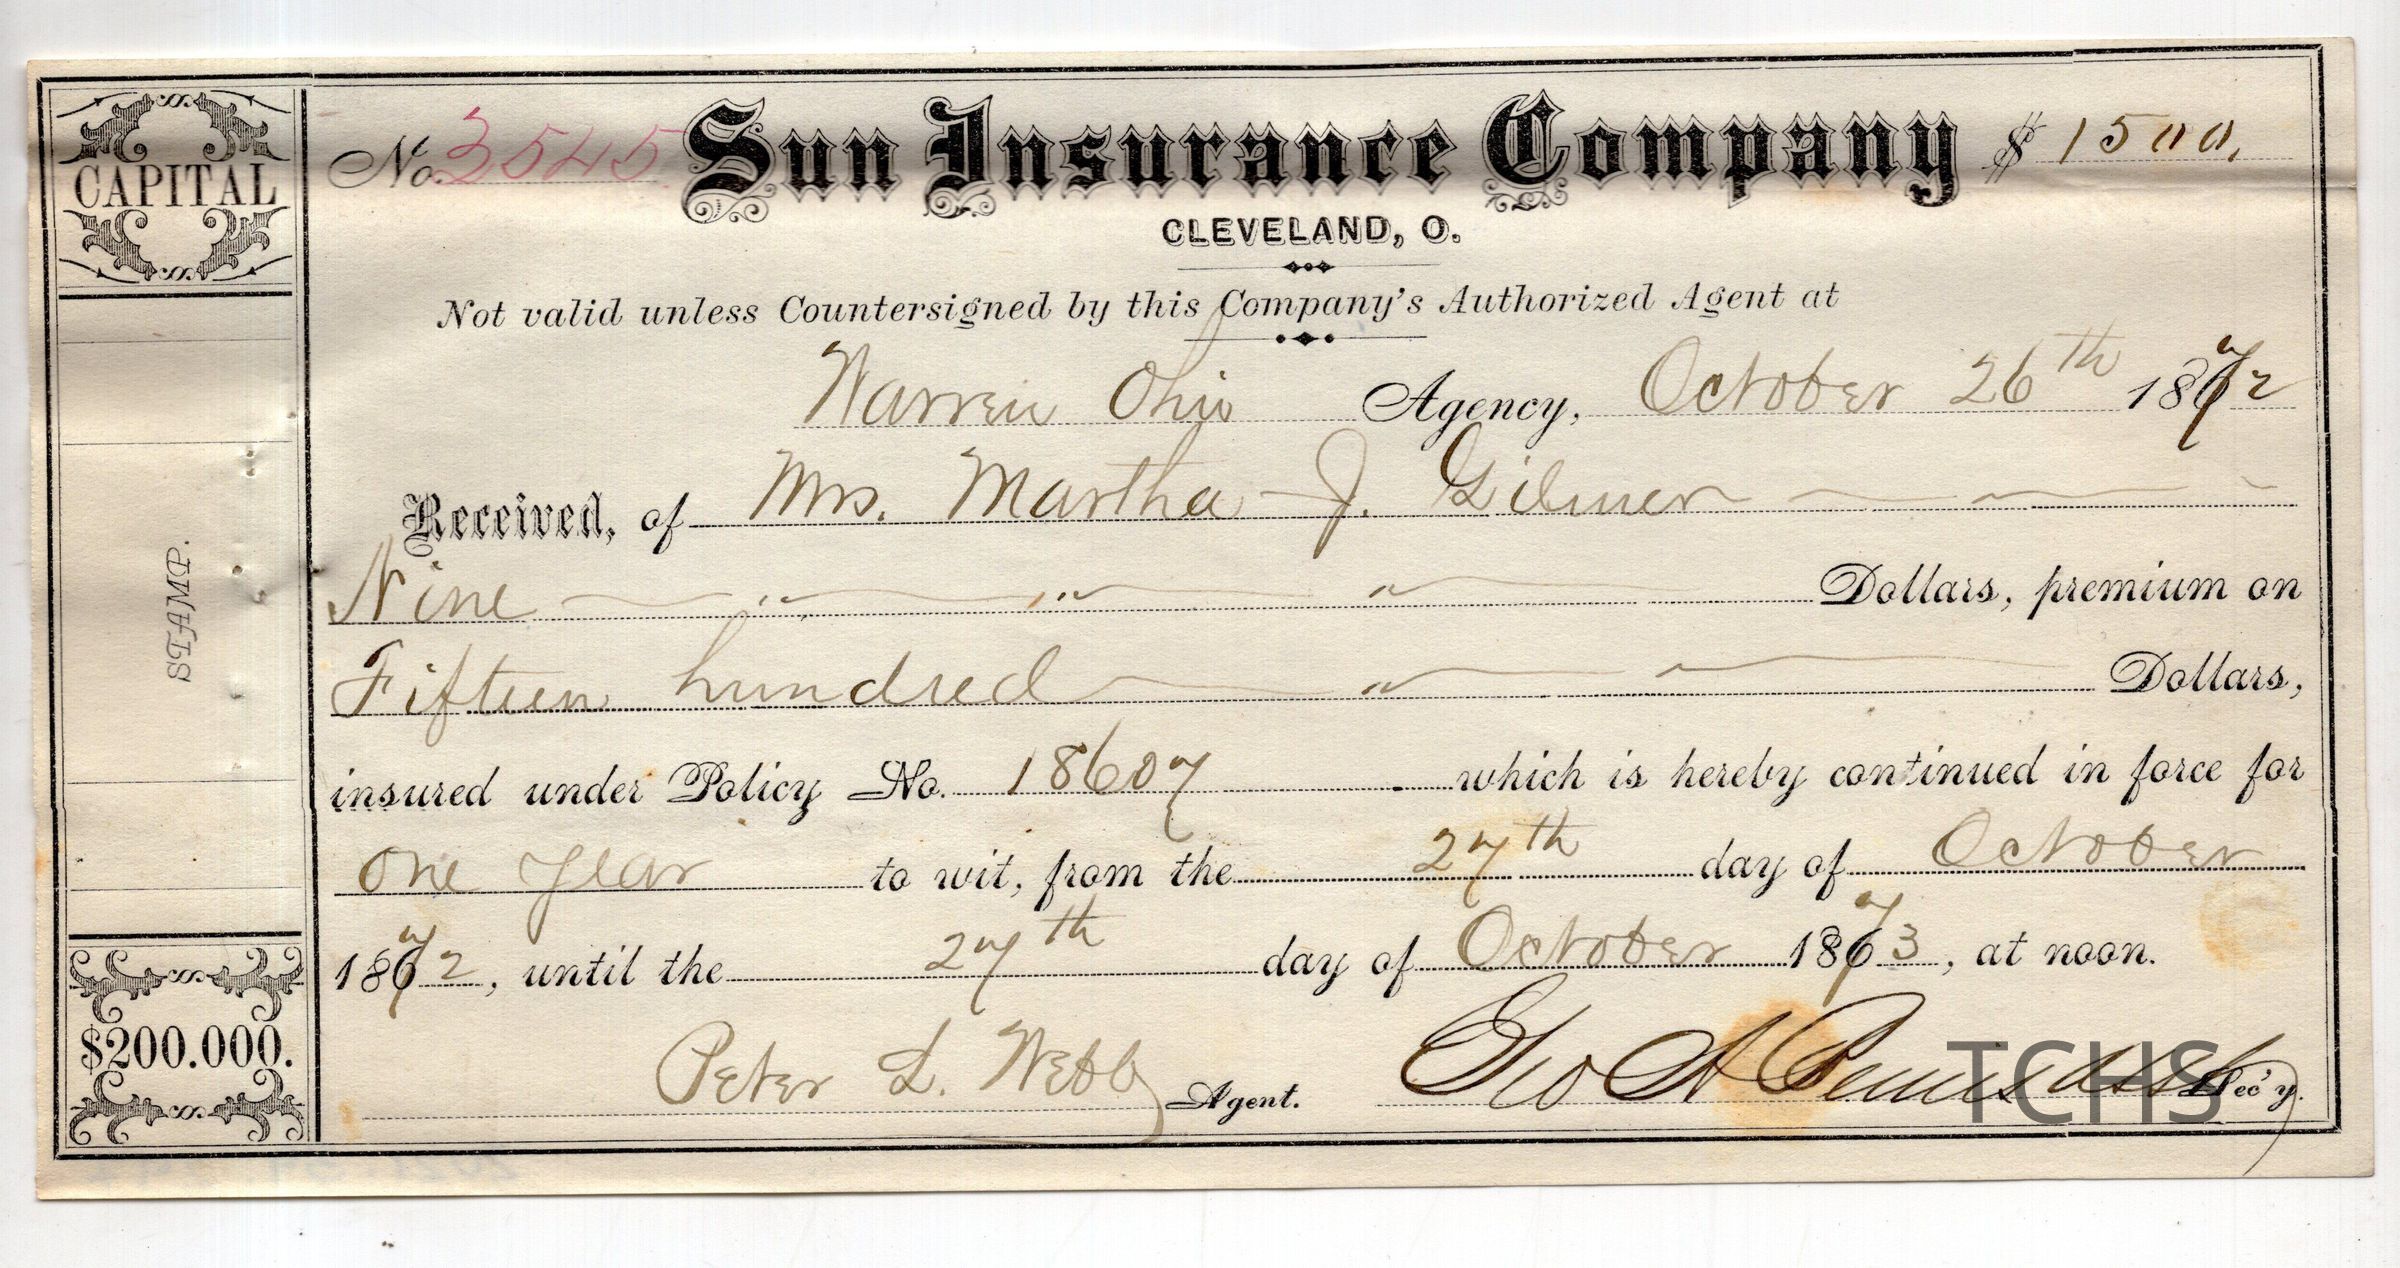 CAPITAL
No. 3545 Sun Insurance Company $ 1500.
CLEVELAND, O.
Not valid unless Countersigned by this Company's Authorized Agent at
Warren Ohio Agency, October 26th 1872
Received, of Mrs. Martha J. Gilmer
Nine Dollars, premium on
Fifteen hundred Dollars,
insured under Policy No. 18607 which is hereby continued in force for
One Year to wit, from the 27th day of October
1872, until the 27th day of October 1873, at noon.
Peter L. Webb Agent. Geo A Sec'y.
STAMP.
$200.000.
TCHS